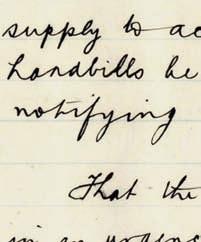 supply to ac
handbills be
notifying
That the